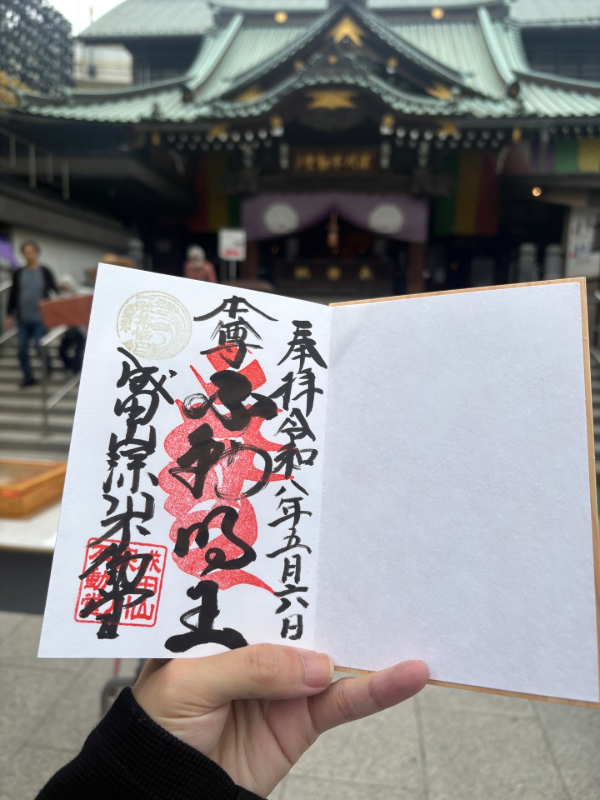 奉拝 令和八年五月六日
本尊
不動明王
成田山深川不動堂
成田山
深川
不動堂